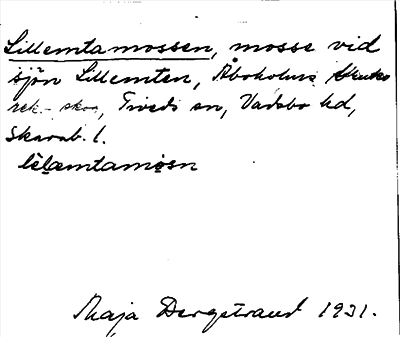 Lillemtamossen, mosse vid
sjön Lillemten, Åboholms
rek. skog, Tiveds sn, Vadsbo hd,
Skarab. l.
lèlæmtamòsn
Maja Bergstrand 1931.